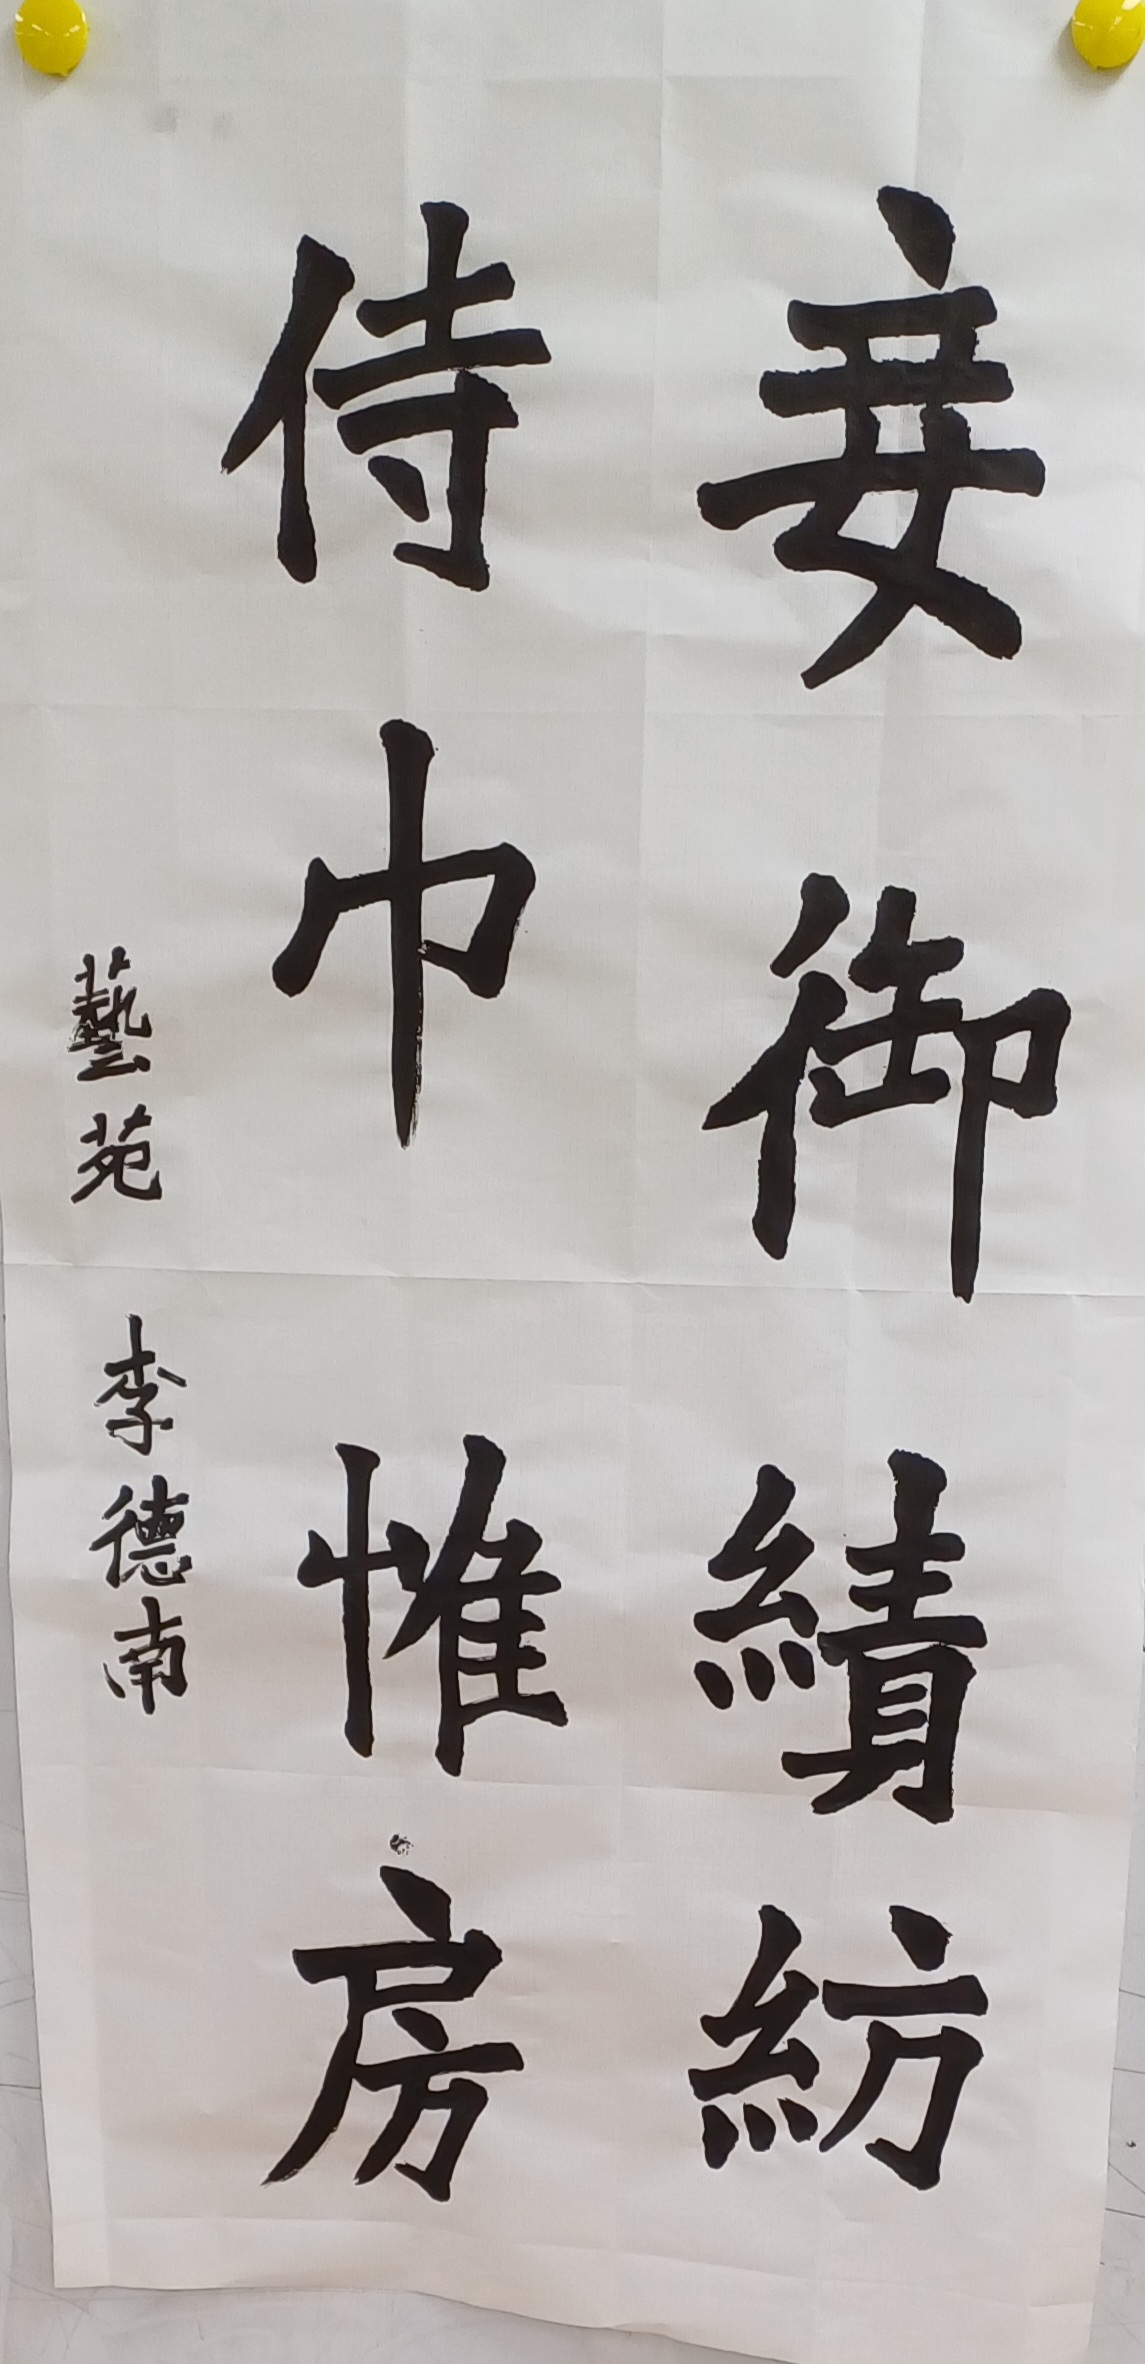 妾御績紡
侍巾惟房
藝苑 李德南